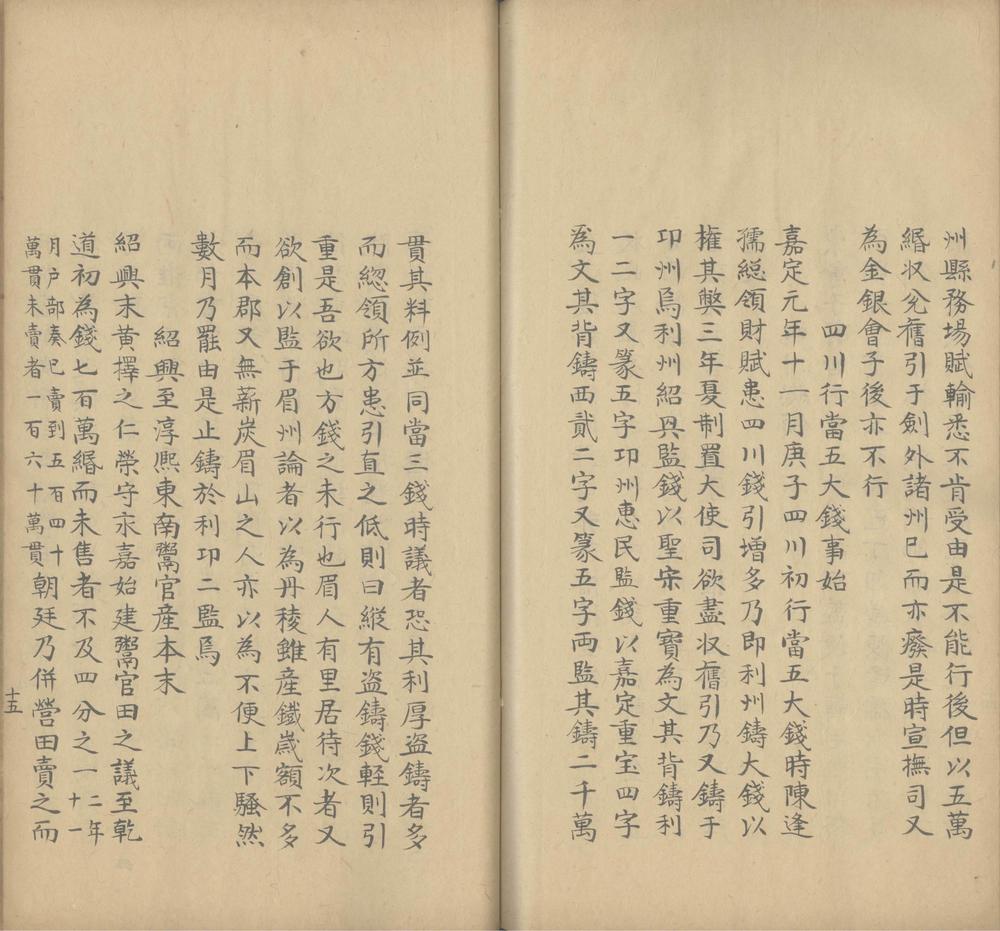 州縣務場賦輸悉不肯受由是不能行後但以五萬
緡収兊舊引于劍外諸州巳而亦廢是時宣撫司又
為金銀會子後亦不行
四川行當五大錢事始
嘉定元年十一月庚子四川初行當五大錢時陳逢
孺緫領財賦患四川錢引增多乃即利州鑄大錢以
權其弊三年夏制置大使司欲盡収舊引乃又鑄于
卭州焉利州紹興監錢以聖宋重寶為文其背鑄利
一二字又篆五字卭州惠民監錢以嘉定重宝四字
爲文其背鑄西貳二字又篆五字両監其鑄二千萬
貫其料例並同當三錢時議者恐其利厚盜鑄者多
而緫領所方患引直之低則曰縱有盜鑄錢輕則引
重是吾欲也方錢之未行也眉人有里居待次者又
欲創以監于眉州論者以為丹稜雖産鐵歲額不多
而本郡又無薪炭眉山之人亦以為不便上下騷然
數月乃罷由是止鑄於利卭二監焉
紹興至淳熙東南鬻官産本末
紹興末黄擇之仁榮守永嘉始建鬻官田之議至乾
道初為錢七百萬緡而未售者不及四分之一二年十一
月戸部奏巳賣到五百四十萬貫未賣者一百六十萬貫朝廷乃併營田賣之而
十五